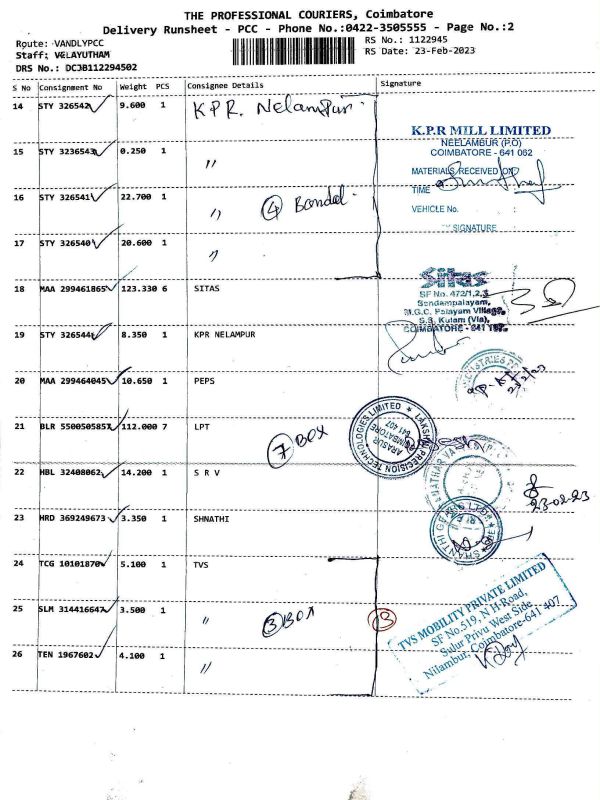 THE PROFESSIONAL COURIERS, Coimbatore
Delivery Runsheet - PCC - Phone No.:0422-3505555 - Page No.:2
Route: VANDLYPCC
RS No.: 1122945
Staff: VELAYUTHAM
RS Date: 23-Feb-2023
DRS No.: DCJB112294502
S No Consignment No Weight PCS Consignee Details Signature
14 STY 326542 9.600 1 K.P.R. Nelampur
15 STY 3236543 0.250 1 "
16 STY 326541 22.700 1 " 4 Bondel
17 STY 326540 20.600 1 "
K.P.R MILL LIMITED
NEELAMBUR (P.O)
COIMBATORE - 641 062
MATERIALS RECEIVED ON
TIME
VEHICLE No.
SIGNATURE
18 MAA 299461865 123.330 6 SITAS
Sitas
SF No. 472/1,2,3
Sendampalayam,
M.G.C. Palayam Village,
S.S. Kulam (Via),
COIMBATORE - 641 107.
19 STY 326544 8.350 1 KPR NELAMPUR
20 MAA 299464045 10.650 1 PEPS
21 BLR 5500505857 112.000 7 LPT
7 BOX
LAKSHMI PRECISION TECHNOLOGIES LIMITED
ARASUR
COIMBATORE
641 407
22 HBL 32408062 14.200 1 S R V
23-02-23
23 HRD 369249673 3.350 1 SHNATHI
SHANTHI GEARS LTD
24 TCG 10101870 5.100 1 TVS
25 SLM 314416647 3.500 1 " 3 BOX 3
26 TEN 1967602 4.100 1 "
TVS MOBILITY PRIVATE LIMITED
SF No.519, N H-Road,
Sulur Privu West Side
Nilambur, Coimbatore-641 407